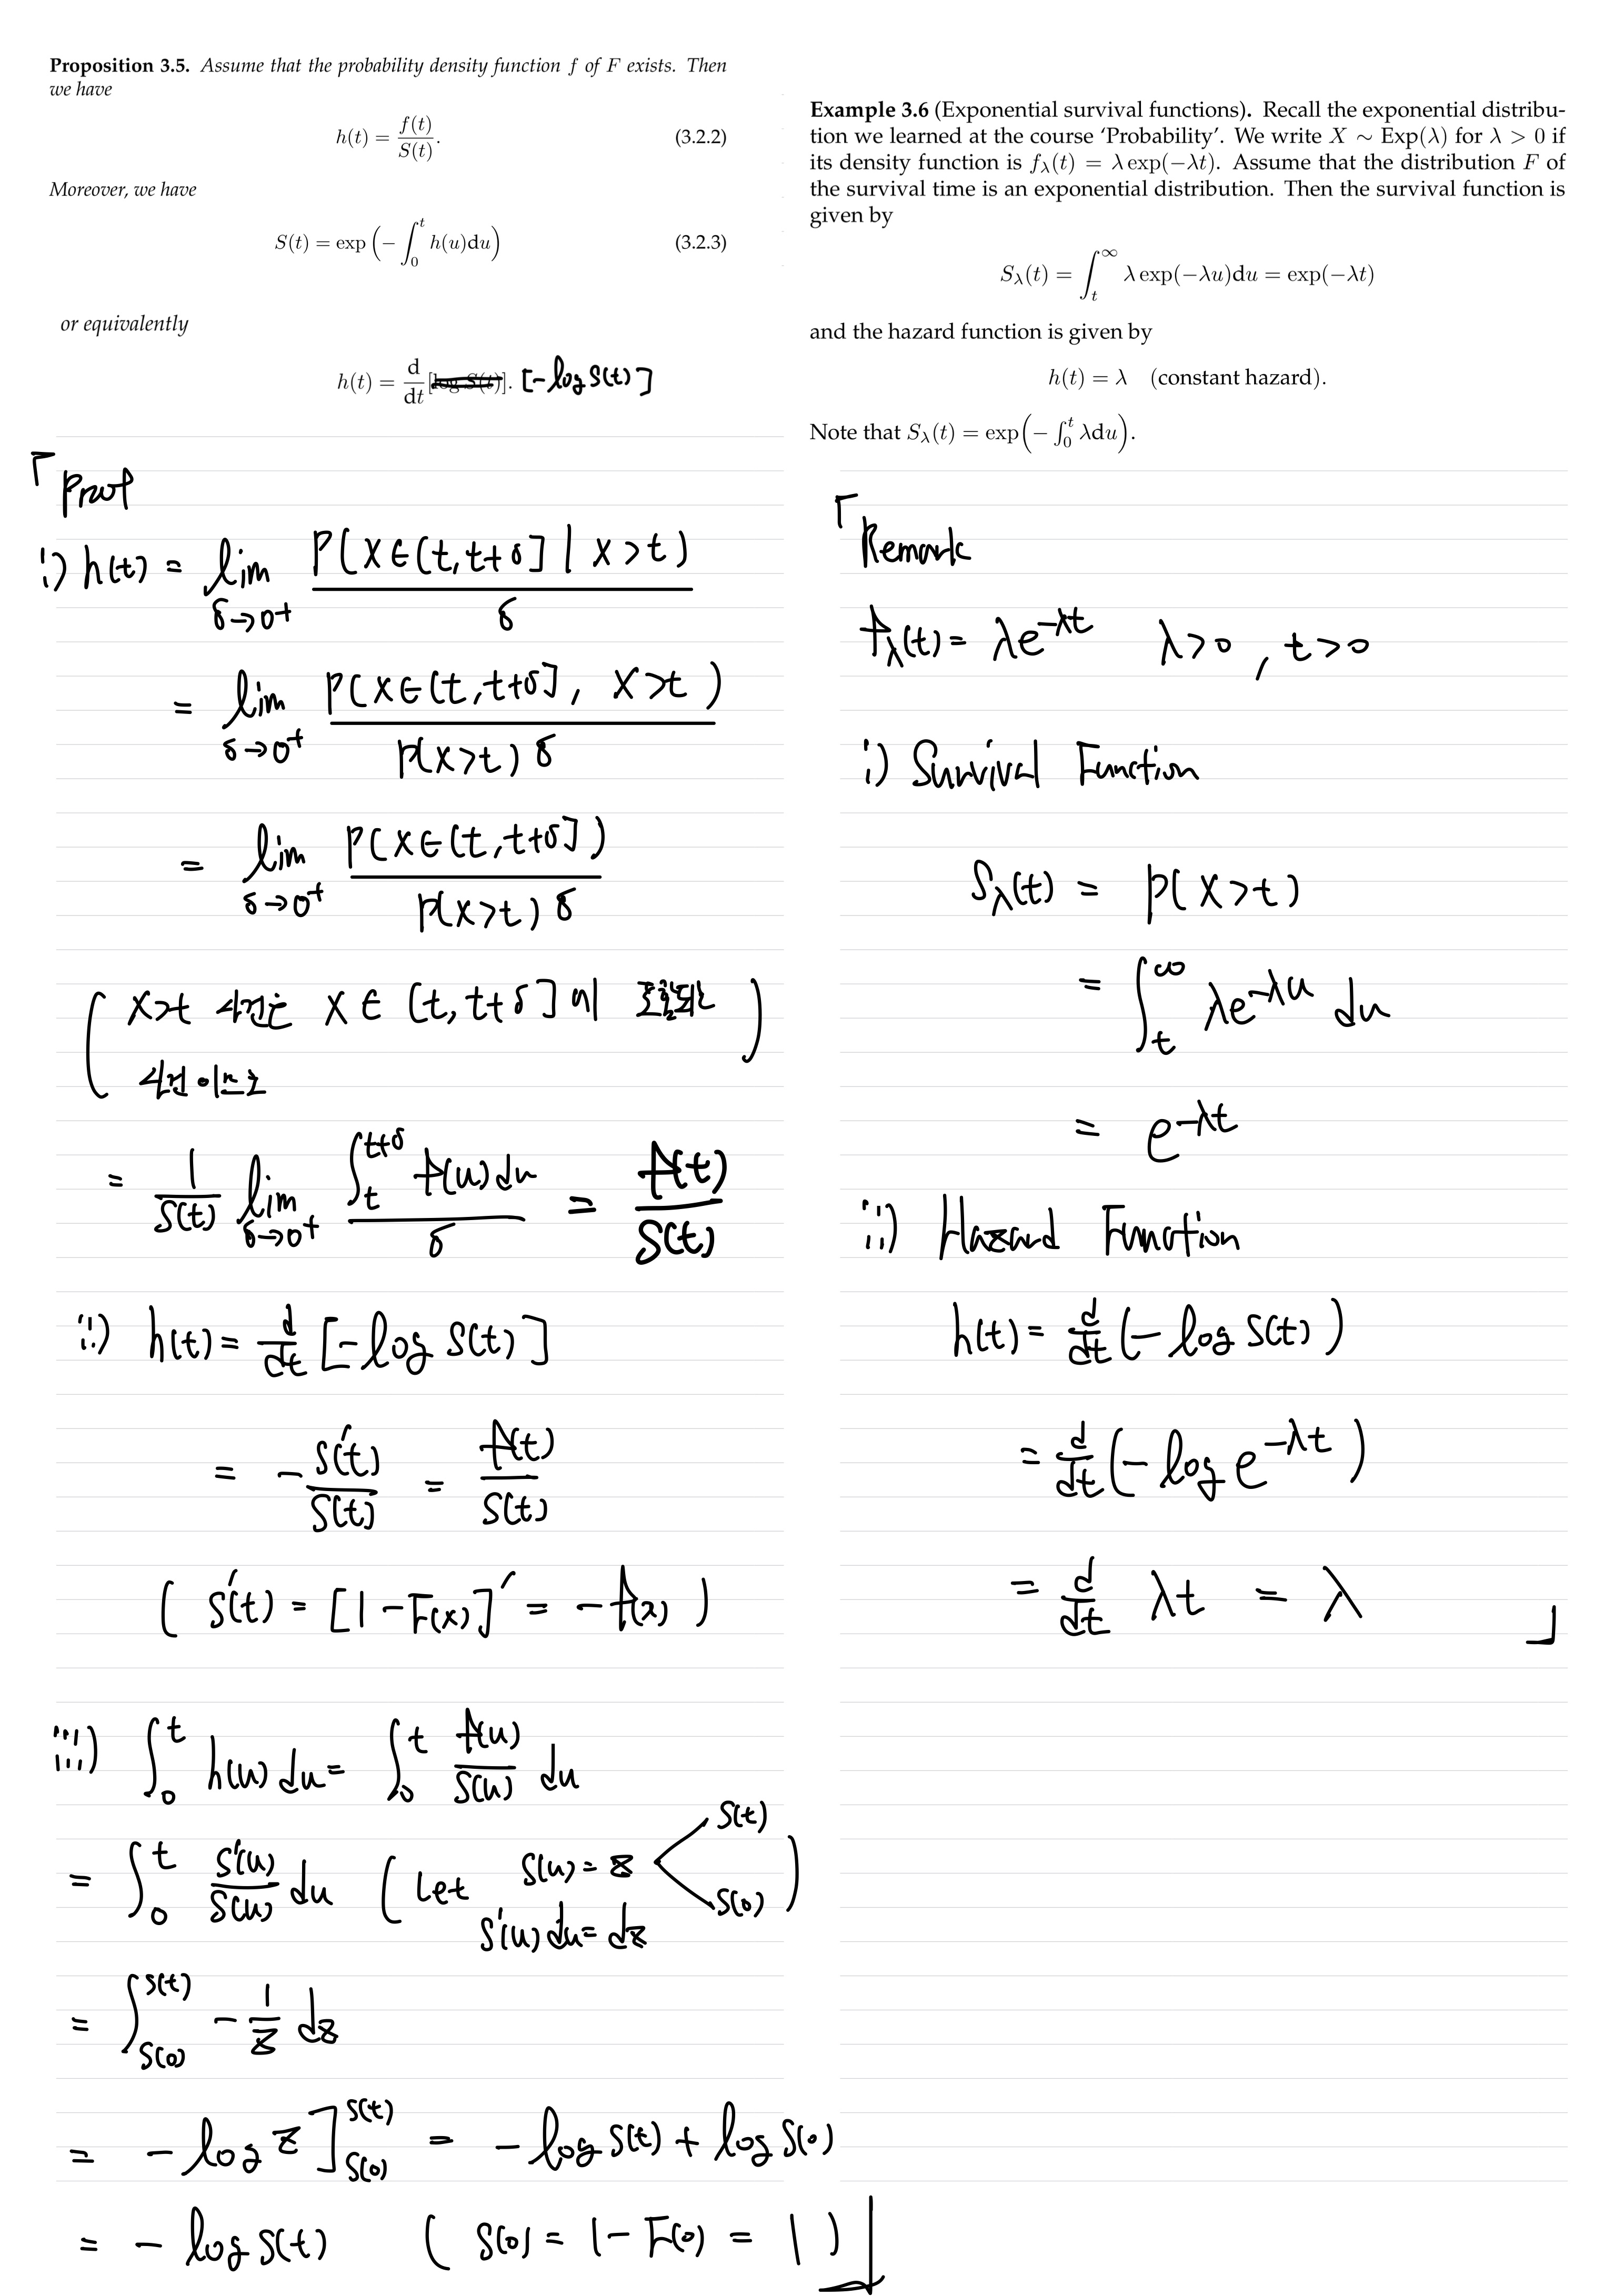 Proposition 3.5. Assume that the probability density function f of F exists. Then
we have
h(t) = f(t)/S(t). (3.2.2)
Moreover, we have
S(t) = exp(−∫₀ᵗ h(u)du) (3.2.3)
or equivalently
h(t) = d/dt [log S(t)]. [-log S(t)]
「Proof
i) h(t) = lim_{δ→0+} P(X∈(t,t+δ] | X>t) / δ
= lim_{δ→0+} P(X∈(t,t+δ], X>t) / P(X>t) δ
= lim_{δ→0+} P(X∈(t,t+δ]) / P(X>t) δ
( X>t 사건은 X∈(t,t+δ]에 포함되는
사건이므로 )
= 1/S(t) lim_{δ→0+} ∫_t^{t+δ} f(u)du / δ = f(t)/S(t)
ii) h(t) = d/dt [-log S(t)]
= -S'(t)/S(t) = f(t)/S(t)
( S'(t) = [1-F(x)]' = -f(x) )
iii) ∫₀ᵗ h(u)du = ∫₀ᵗ f(u)/S(u) du
= ∫₀ᵗ S'(u)/S(u) du ( Let S(u) = z < S(t) S(0)
S'(u)du = dz )
= ∫_{S(0)}^{S(t)} -1/z dz
= -log z ]_{S(0)}^{S(t)} = -log S(t) + log S(0)
= -log S(t) ( S(0) = 1-F(0) = 1 )」
Example 3.6 (Exponential survival functions). Recall the exponential distribu-
tion we learned at the course ‘Probability’. We write X ∼ Exp(λ) for λ > 0 if
its density function is f_λ(t) = λ exp(−λt). Assume that the distribution F of
the survival time is an exponential distribution. Then the survival function is
given by
S_λ(t) = ∫_t^∞ λ exp(−λu)du = exp(−λt)
and the hazard function is given by
h(t) = λ (constant hazard).
Note that S_λ(t) = exp(−∫₀ᵗ λdu).
「Remark
f_λ(t) = λe^{-λt} λ>0, t>0
i) Survival Function
S_λ(t) = P(X>t)
= ∫_t^∞ λe^{-λu} du
= e^{-λt}
ii) Hazard Function
h(t) = d/dt (-log S(t))
= d/dt (-log e^{-λt})
= d/dt λt = λ 」